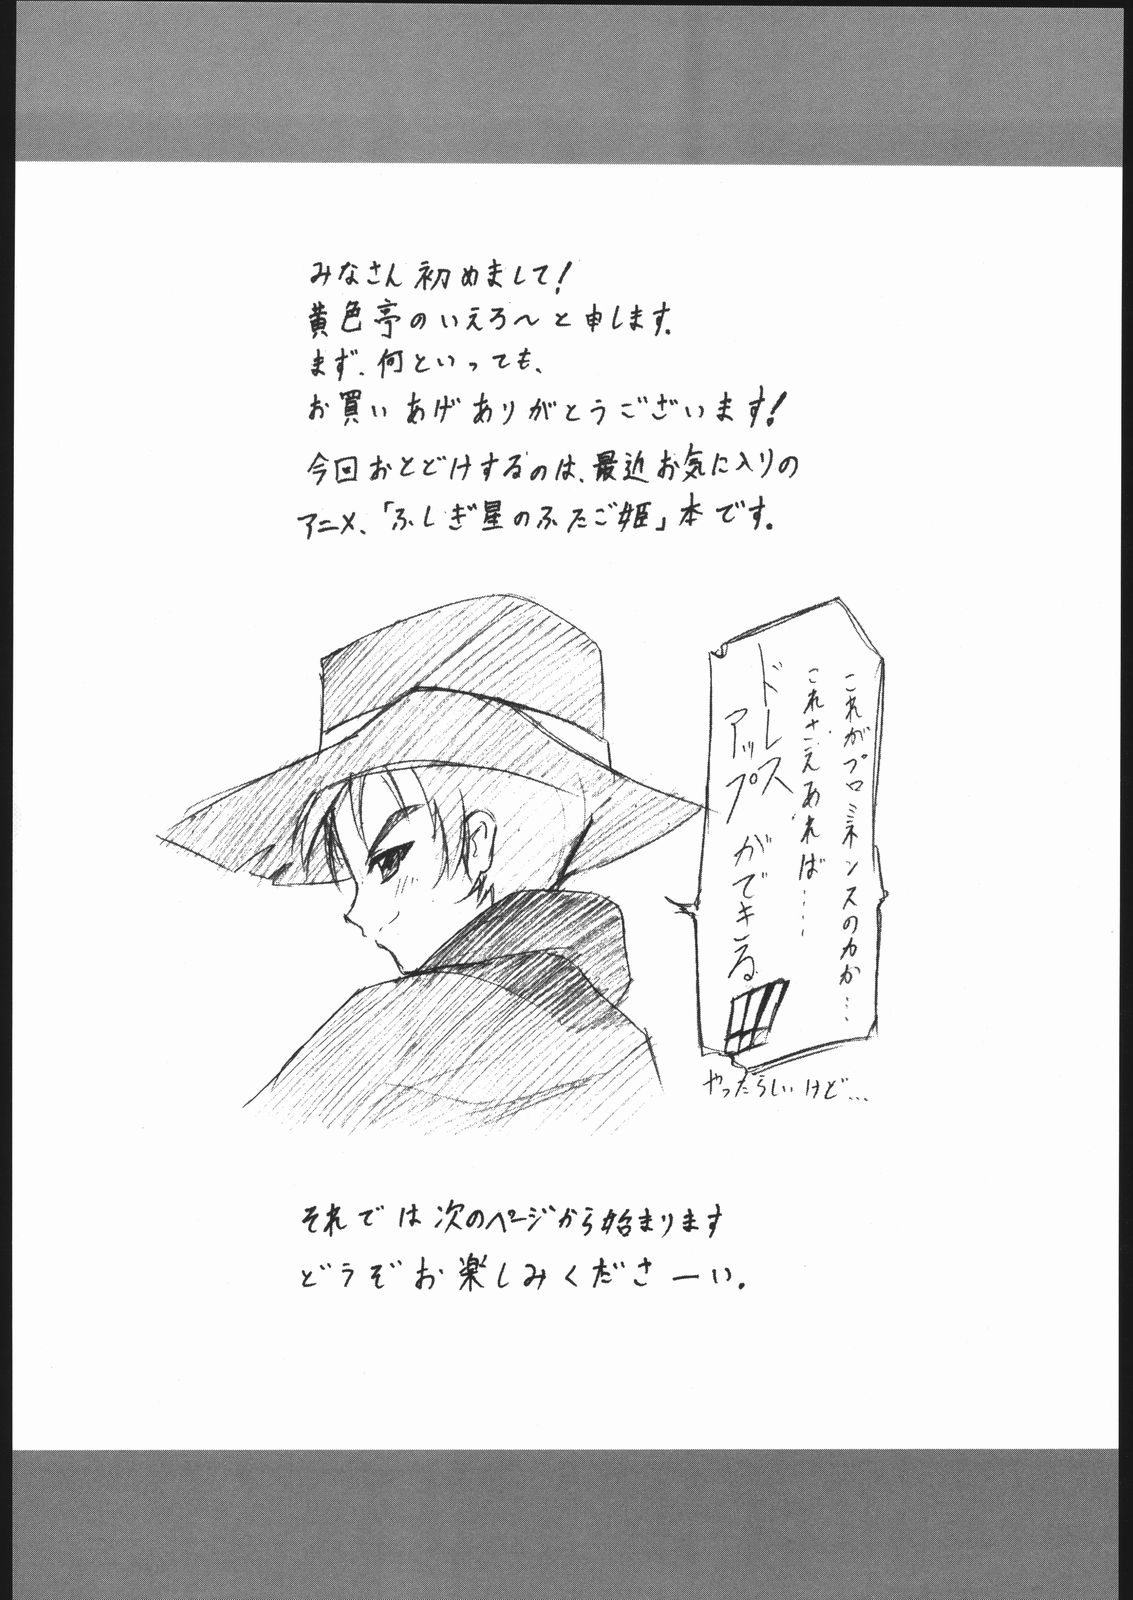 みなさん初めまして!
黄色亭のいえろ〜と申します。
まず、何といっても、
お買いあげありがとうございます!
今回おとどけするのは、最近お気に入りの
アニメ、「ふしぎ星のふたご姫」本です。
これがプロミネンスの力か…
これさえあれば……
ドレス
アップができる
やったらしいけど…
それでは次のページから始まります
どうぞお楽しみくださーい。